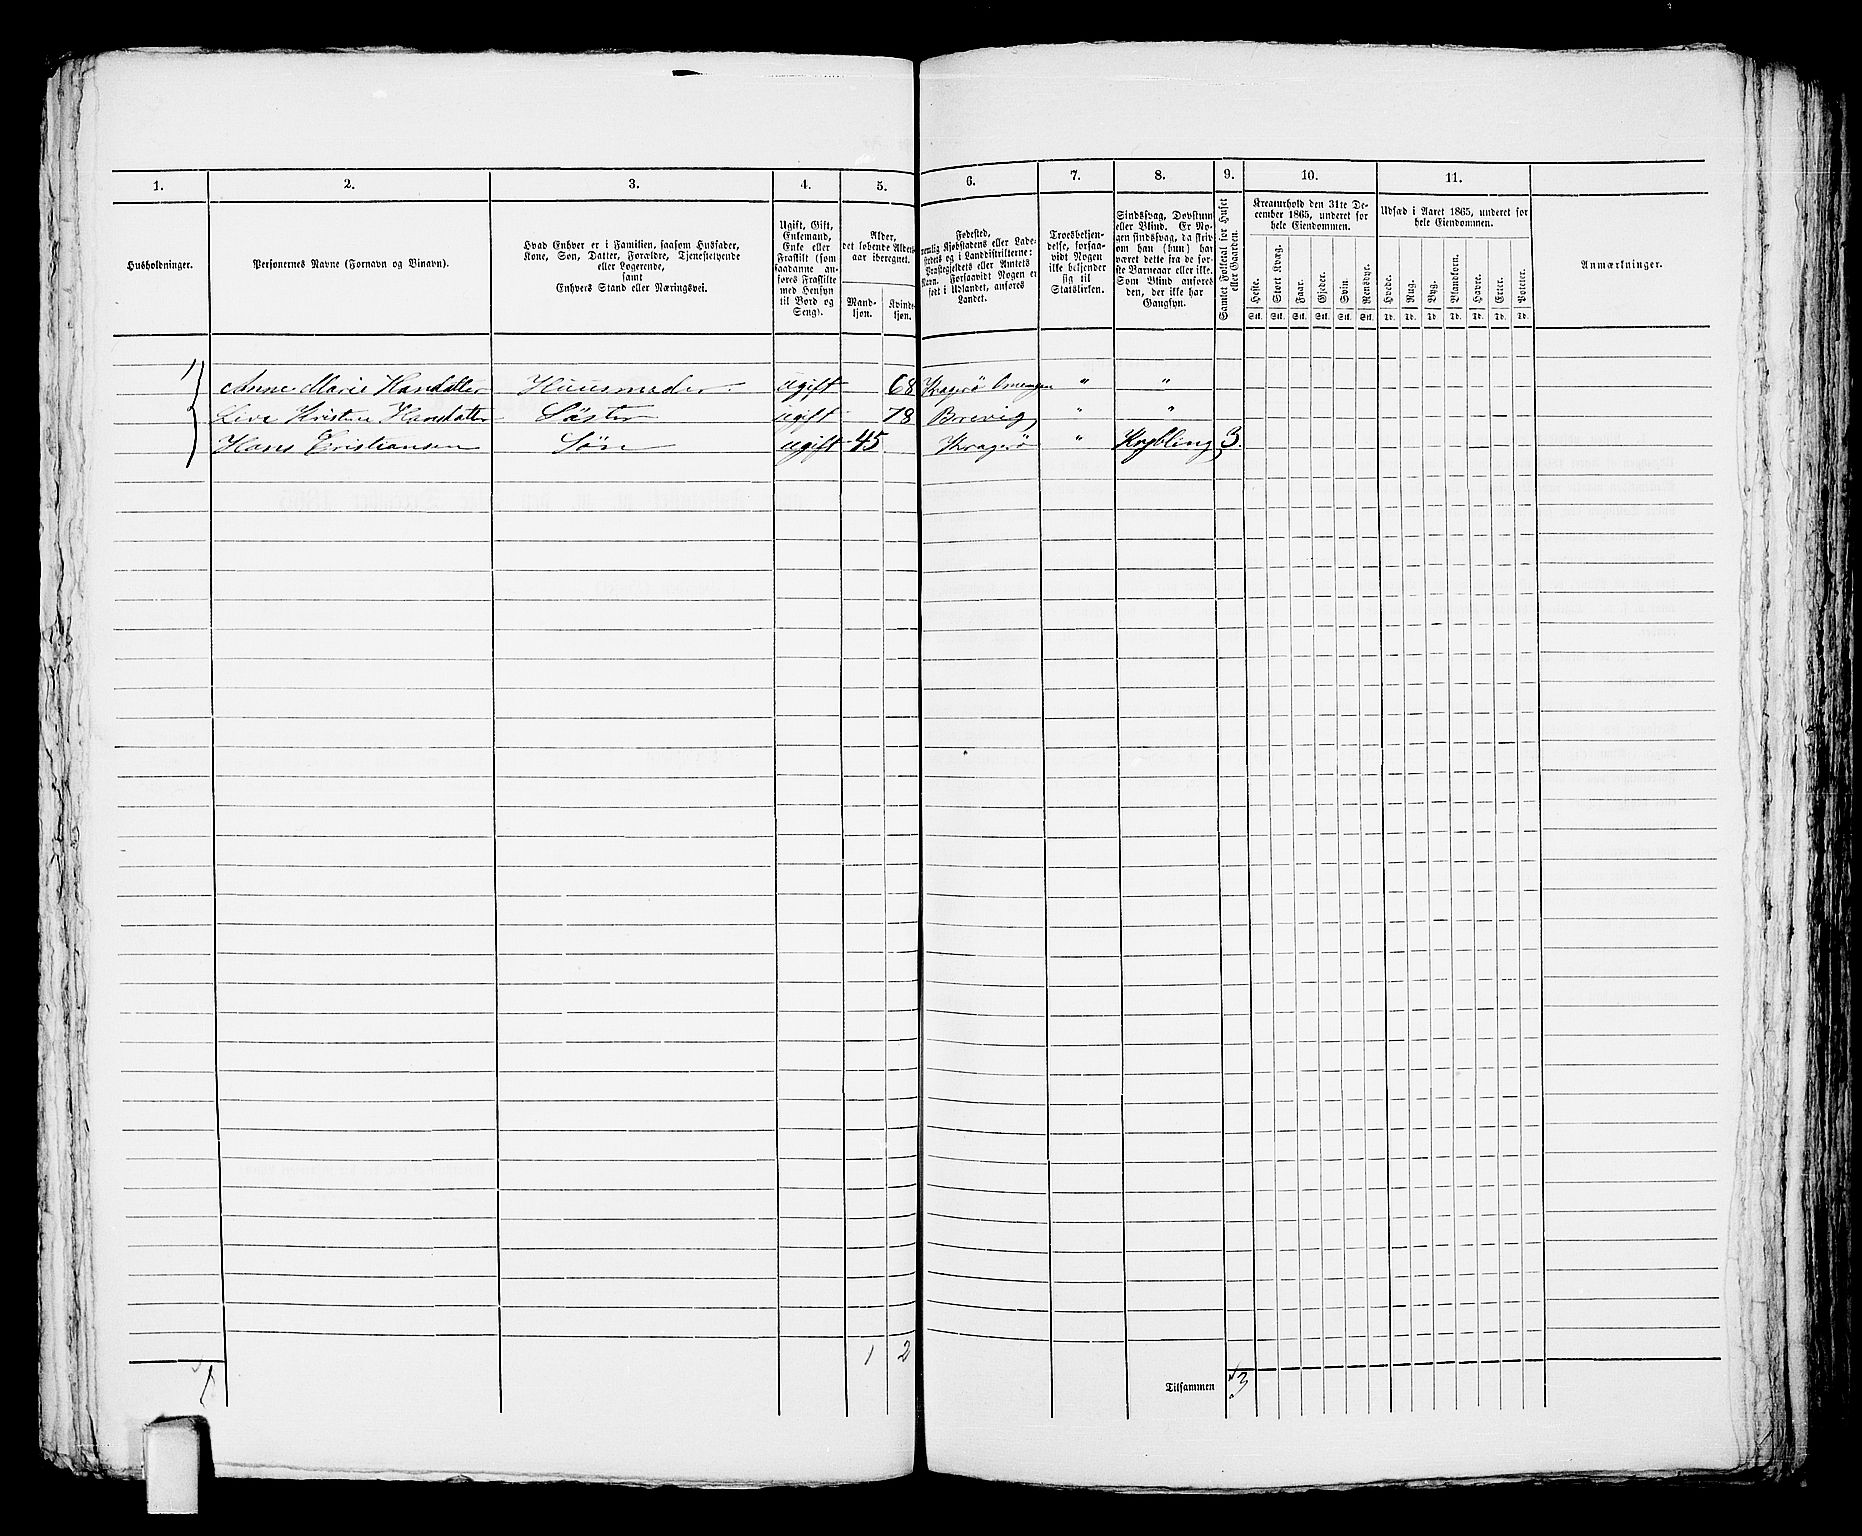 1. 2. 3. 4. 5. 6. 7. 8. 9. 10. 11.
Husholdninger.
Personernes Navne (Fornavn og Tilnavn).
Hvad Enhver er i Familien, saasom Husfader,
Kone, Søn, Datter, Forældre, Tjenestetyende
eller Logerende,
samt
Enhvers Stand eller Næringsvei.
Ugift, Gift,
Enkemand,
Enke eller
Fraskilt (som
saadanne an-
føres Fraskilte
med Hensyn
til Bord og
Seng).
Alder,
det løbende Alders-
aar iberegnet.
Mand-
kjøn.
Kvinde-
kjøn.
Fødested,
nemlig Kjøbstadens eller Lade-
stedets og i Landdistrikterne:
Præstegjeldets eller Amtets
Navn. Forsaavidt Nogen er
født i Udlandet, anføres
Landet.
Troesbekjen-
delse, forsaa-
vidt Nogen
ikke bekjender
sig til
Statskirken.
Sindssvag, Døvstum
eller Blind. Er No-
gen sindssvag, da skriv
om han (hun) har
været dette fra de før-
ste Barneaar eller ikke.
Som Blind anføres
den, der ikke har
Gangsyn.
Samlet Folketal for Huset
eller Gaarden.
Kreaturhold den 31te De-
cember 1865, underet for
hele Eiendommen.
Heste. Stort Kvæg. Faar. Gjeder. Svin. Rensdyr.
Stk. Stk. Stk. Stk. Stk. Stk.
Udsæd i Aaret 1865, underet for
hele Eiendommen.
Hvede. Rug. Byg. Blandkorn. Havre. Erter. Poteter.
Td. Td. Td. Td. Td. Td. Td.
Anmærkninger.
1 Anne Marie Hansdatter Huusmoder ugift 68 Kragerø " "
Kristine Hansdatter Søster ugift 78 Brevig " "
Hans Cristiansen Søn ugift 45 Kragerø " 3
1 2
1 Tilsammen 3